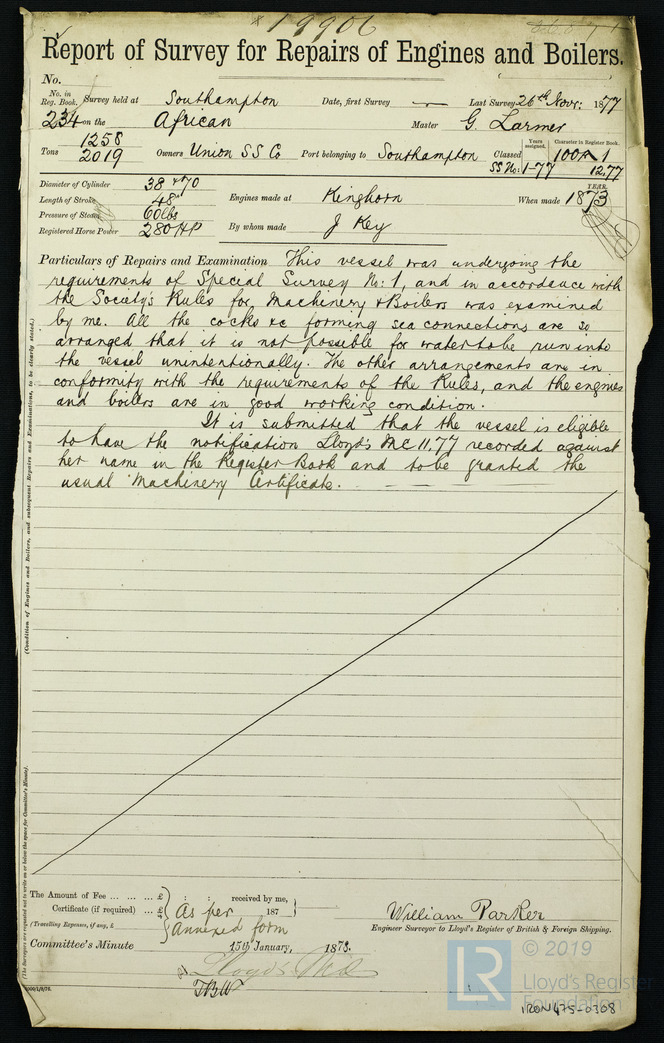 * 19906
Report of Survey for Repairs of Engines and Boilers.
No.
No. in Reg. Book. Survey held at Southampton Date, first Survey — Last Survey 26th Novr: 1877
234 on the African Master G. Larmer
Tons 1258 2019 Owners Union SS Co Port belonging to Southampton Years assigned. Character in Register Book. Classed 100A1 SS No: 1-77 12,77
Diameter of Cylinder 38 & 70
Length of Stroke 48"
Pressure of Steam 60lbs
Registered Horse Power 280 HP
Engines made at Kinghorn When made YEAR. 1873
By whom made J Key
Particulars of Repairs and Examination This vessel was undergoing the
requirements of Special Survey No: 1, and in accordance with
the Society's Rules for Machinery & Boilers was examined
by me. All the cocks &c forming sea connections are so
arranged that it is not possible for water to be run into
the vessel unintentionally. The other arrangements are in
conformity with the requirements of the Rules, and the engines
and boilers are in good working condition.
It is submitted that the vessel is eligible
to have the notification Lloyd's MC 11.77 recorded against
her name in the Register Book and to be granted the
usual Machinery Certificate.
(Condition of Engines and Boilers, and subsequent Repairs and Examinations, to be clearly stated.)
(The Surveyors are requested not to write on or below the space for Committee's Minute).
The Amount of Fee ... ... ... £ : : received by me,
Certificate (if required) ... £ As per 187
(Travelling Expenses, if any, £ Annexed form
William Parker
Engineer Surveyor to Lloyd's Register of British & Foreign Shipping.
Committee's Minute 15th January, 1878.
Lloyd's MC
TBW
LR
© 2019
Lloyd's Register
Foundation
IRON475-0308